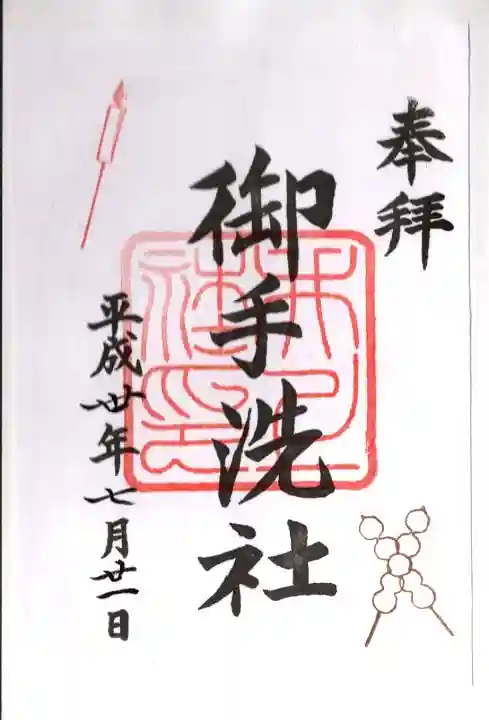 奉拝
御手洗社
平成廿年七月廿一日